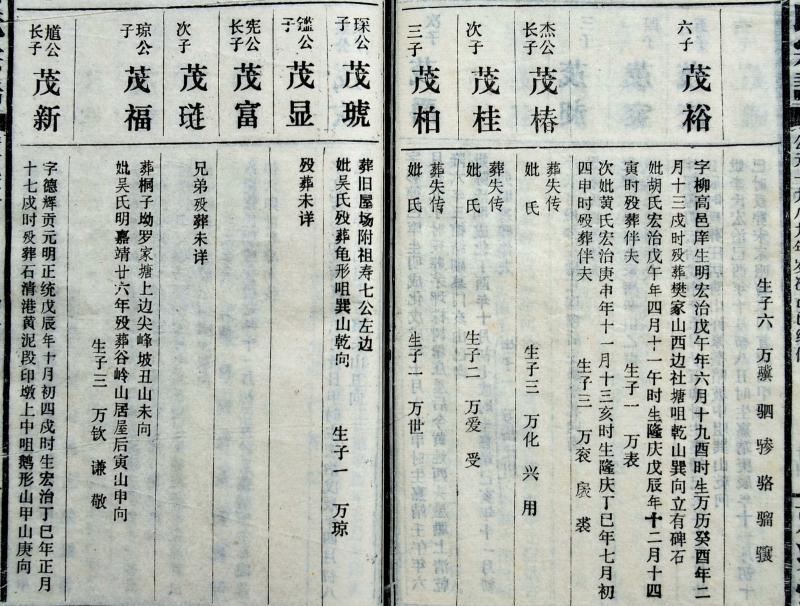 生子六 万骥 驷 骖 骆 骝 骧
六子
茂裕
字柳高邑庠生明宏治戊午年六月十九酉时生万历癸酉年二
月十三戌时殁葬樊家山西边社塘咀乾山巽向立有碑石
妣胡氏宏治戊午年四月十一午时生隆庆戊辰年十二月十四
寅时殁葬伴夫 生子一 万表
次妣黄氏宏治庚申年十一月十三亥时生隆庆丁巳年七月初
四申时殁葬伴夫 生子三 万衮 裘
杰公
长子
茂椿
葬失传
妣 氏 生子三 万化 兴 用
次子
茂桂
葬失传
妣 氏 生子二 万爱 受
三子
茂柏
葬失传
妣 氏 生子一 万世
琛公
子
茂琥
葬旧屋场附祖寿七公左边
妣吴氏殁葬龟形咀巽山乾向 生子一 万琼
鑑公
子
茂显
殁葬未详
宪公
长子
茂富
次子
茂琏
兄弟殁葬未详
琼公
子
茂福
葬桐子坳罗家塘上边尖峰坡丑山未向
妣吴氏明嘉靖廿六年殁葬谷岭山居屋后寅山申向
生子三 万钦 谦 敬
馗公
长子
茂新
字德辉贡元明正统戊辰年十月初四戌时生宏治丁巳年正月
十七戌时殁葬石清港黄泥段印墩上中咀鹅形山甲山庚向